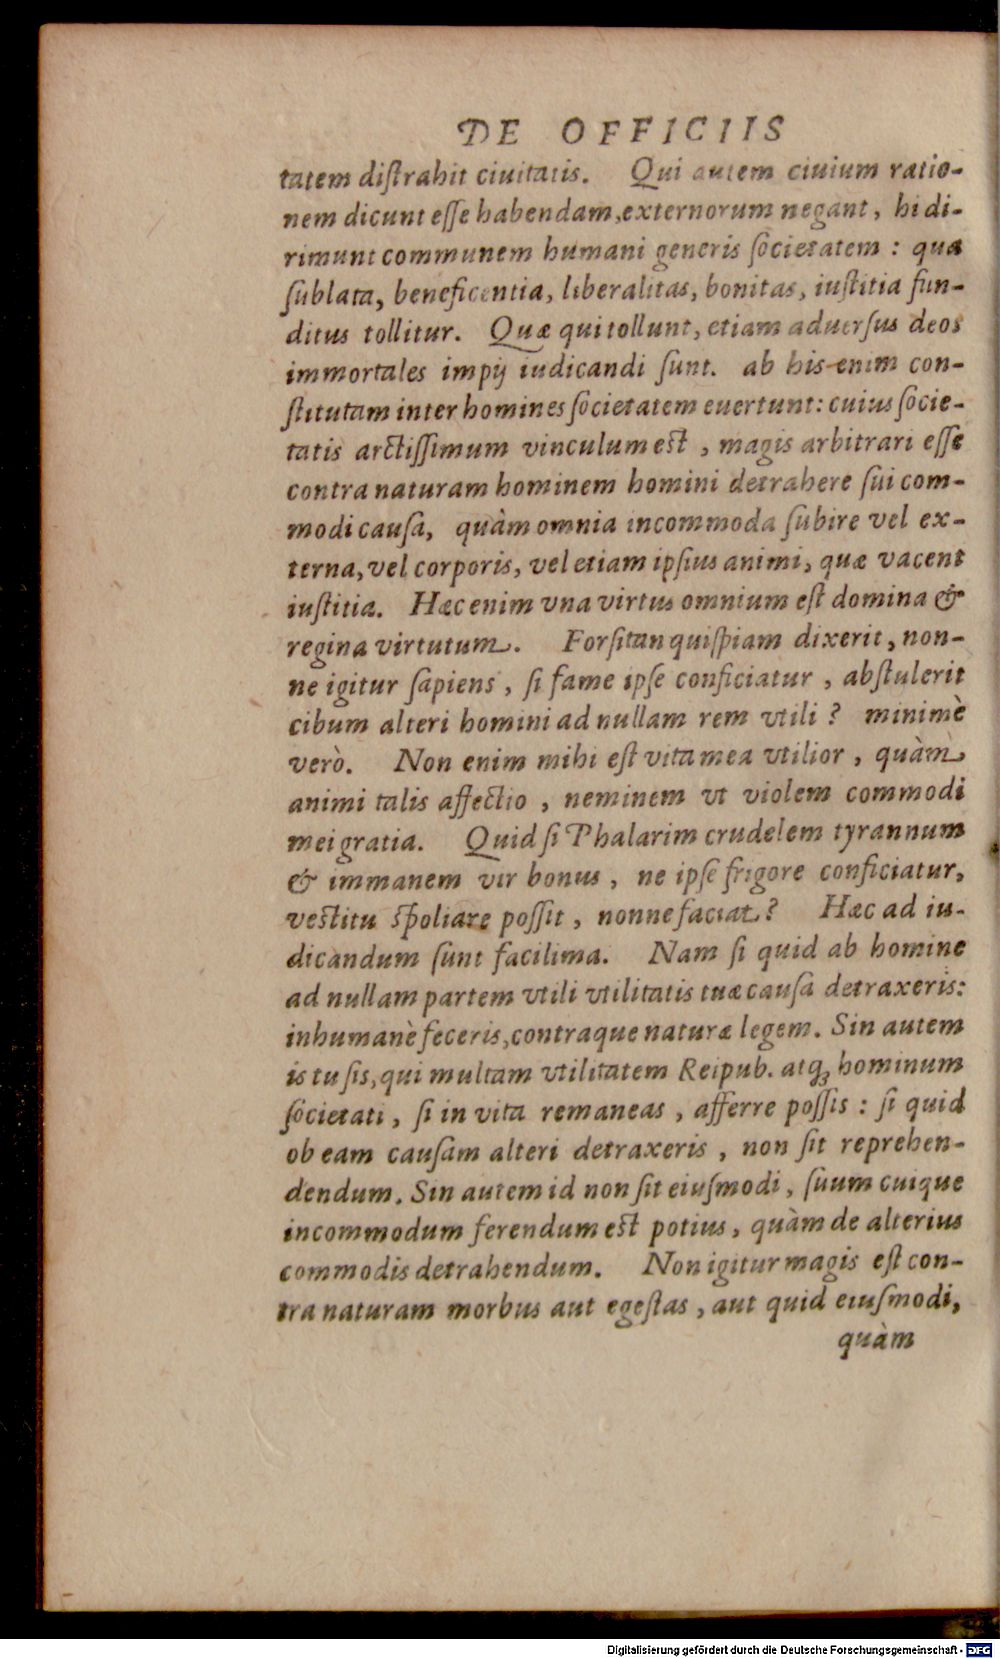 DE OFFICIIS
tatem diſtrahit ciuitatis. Qui autem ciuium ratio-
nem dicunt eſſe habendam, externorum negant, hi di-
rimunt communem humani generis ſocietatem: qua
ſublata, beneficentia, liberalitas, bonitas, iuſtitia fun-
ditus tollitur. Quæ qui tollunt, etiam aduerſus deos
immortales impij iudicandi ſunt. ab his enim con-
ſtitutam inter homines ſocietatem euertunt: cuius ſocie-
tatis arctiſſimum vinculum eſt, magis arbitrari eſſe
contra naturam hominem homini detrahere ſui com-
modi cauſa, quàm omnia incommoda ſubire vel ex-
terna, vel corporis, vel etiam ipſius animi, quæ vacent
iuſtitia. Hæc enim vna virtus omnium eſt domina &
regina virtutum. Forſitan quiſpiam dixerit, non-
ne igitur ſapiens, ſi fame ipſe conficiatur, abſtulerit
cibum alteri homini ad nullam rem vtili? minimè
verò. Non enim mihi eſt vita mea vtilior, quàm
animi talis affectio, neminem vt violem commodi
mei gratia. Quid ſi Phalarim crudelem tyrannum
& immanem vir bonus, ne ipſe frigore conficiatur,
veſtitu ſpoliare poſſit, nonne faciat? Hæc ad iu-
dicandum ſunt facilima. Nam ſi quid ab homine
ad nullam partem vtili vtilitatis tuæ cauſa detraxeris:
inhumanè feceris, contraque naturæ legem. Sin autem
is tu ſis, qui multam vtilitatem Reipub. atq; hominum
ſocietati, ſi in vita remaneas, afferre poſſis: ſi quid
ob eam cauſam alteri detraxeris, non ſit reprehen-
dendum. Sin autem id non ſit eiuſmodi, ſuum cuique
incommodum ferendum eſt potius, quàm de alterius
commodis detrahendum. Non igitur magis eſt con-
tra naturam morbus aut egeſtas, aut quid eiuſmodi,
quàm
Digitalisierung gefördert durch die Deutsche Forschungsgemeinschaft - DFG